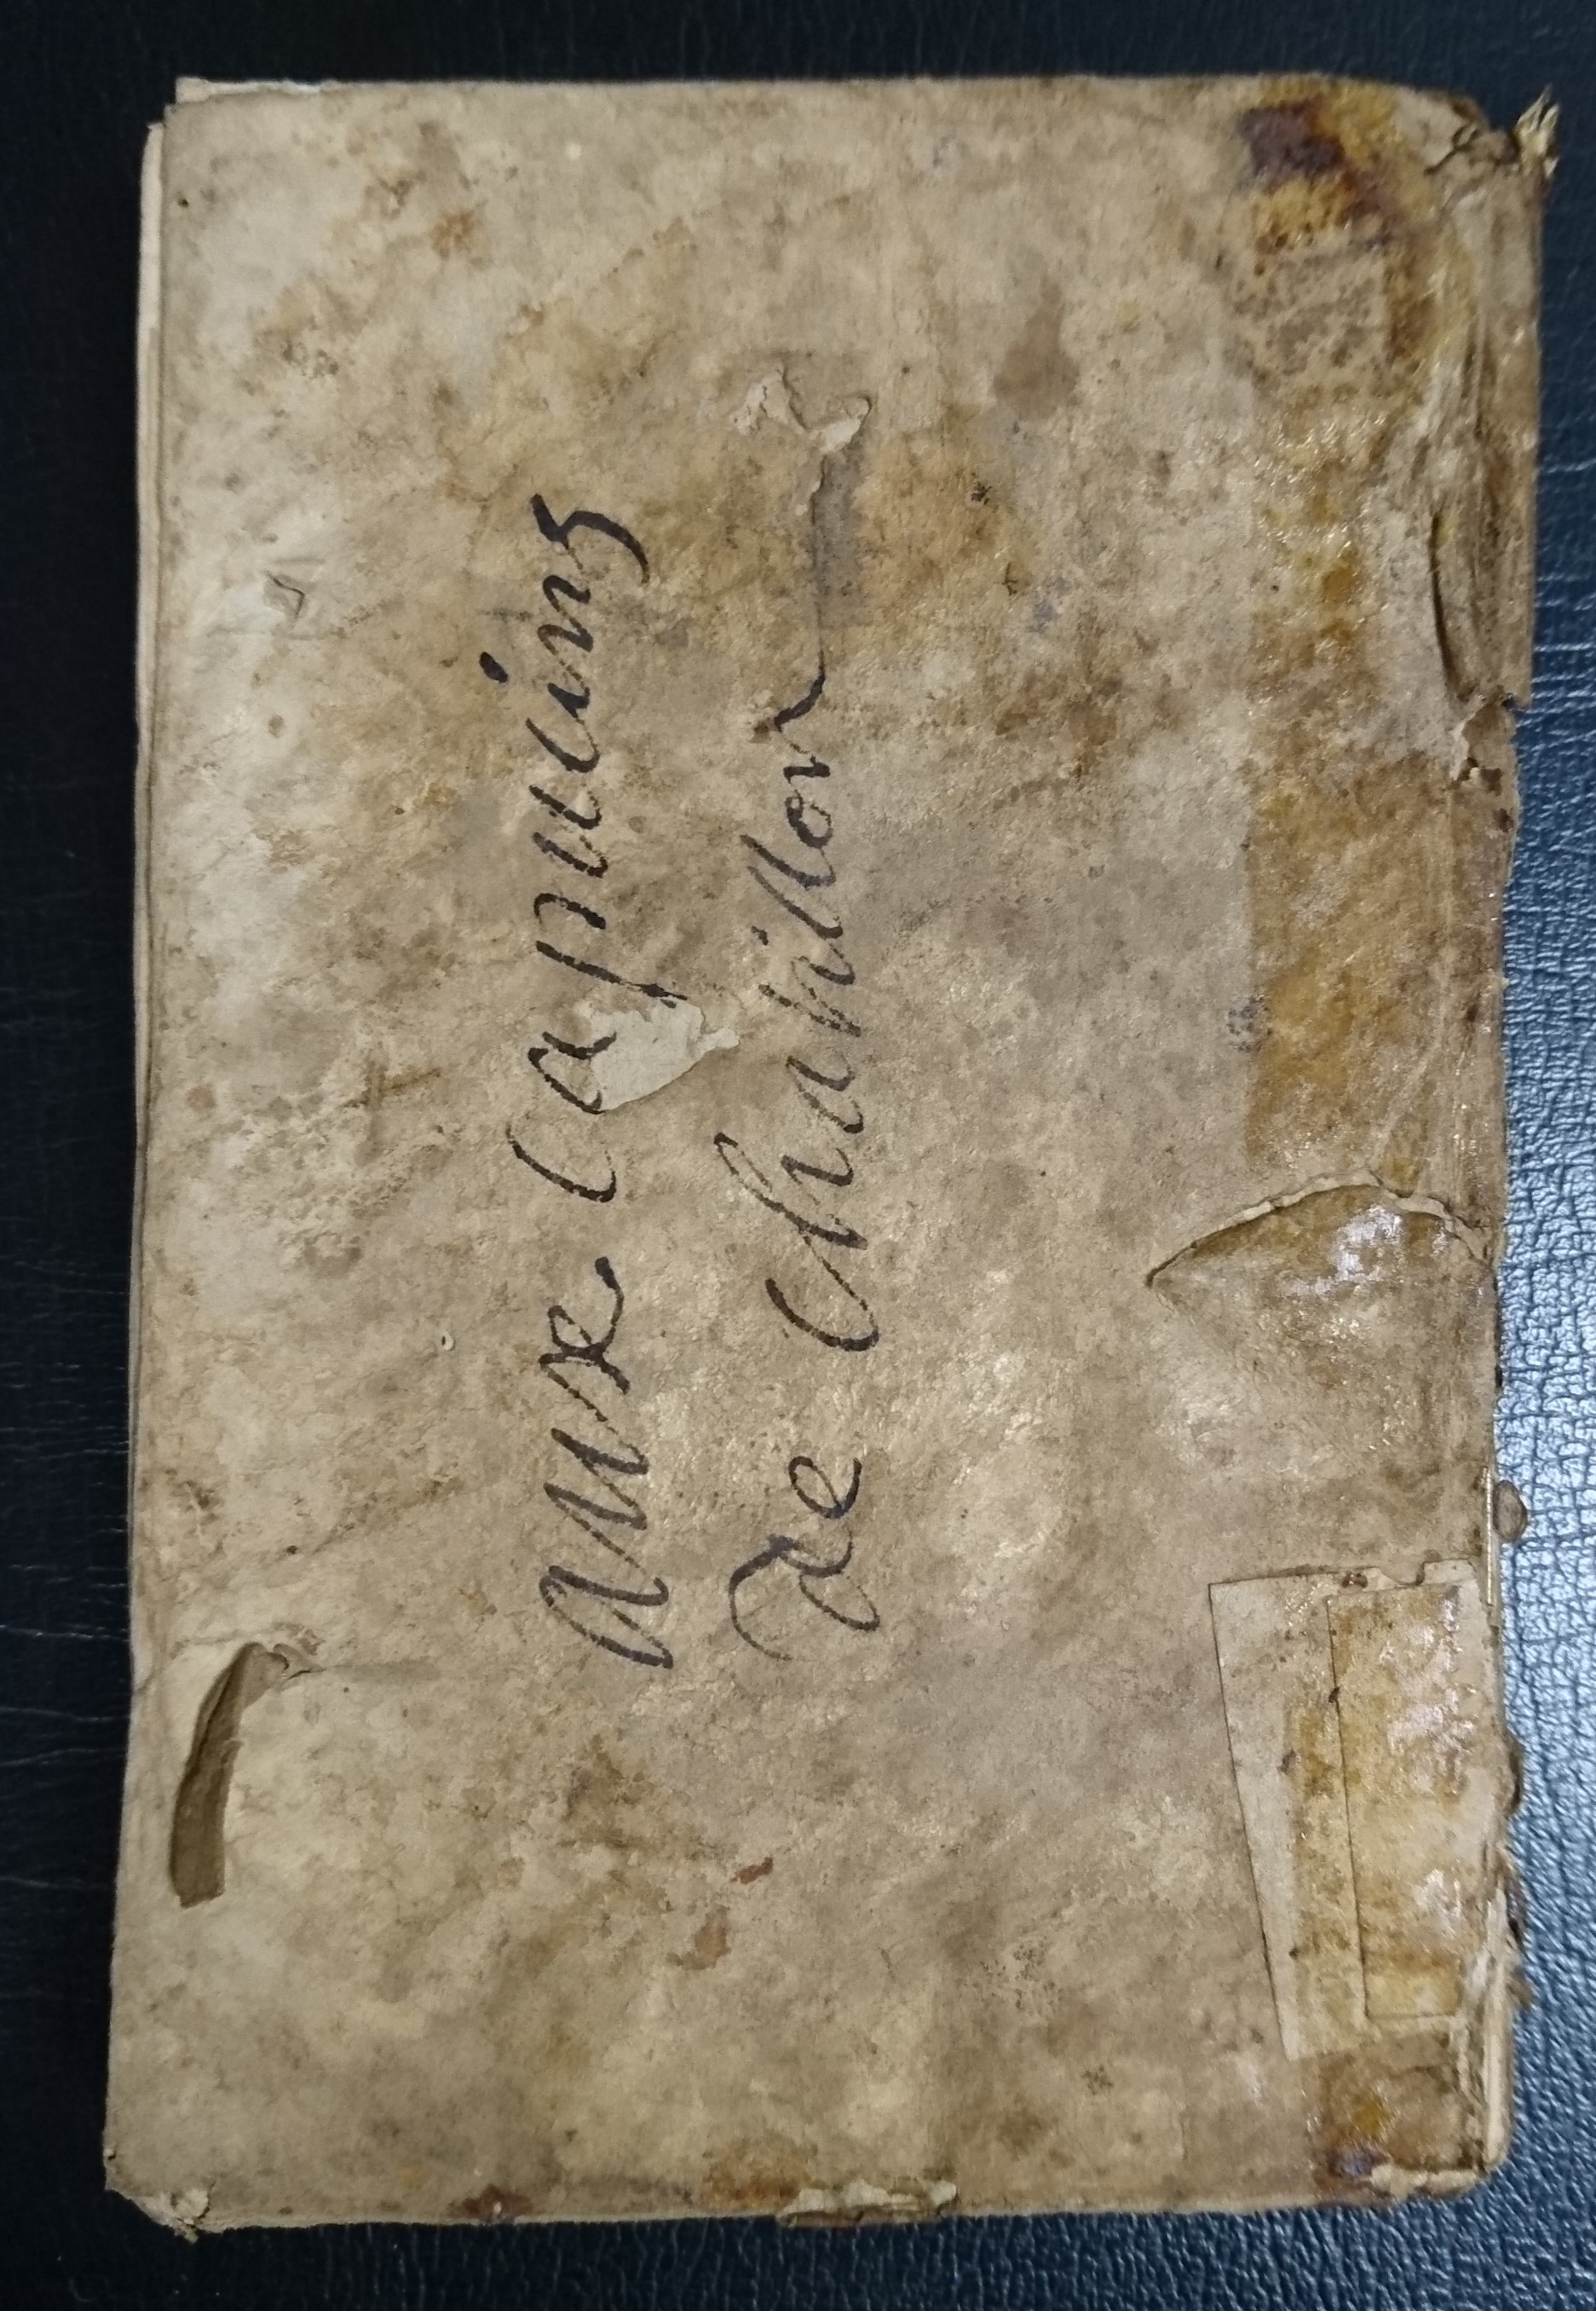 aux Capucins
de Chatillon